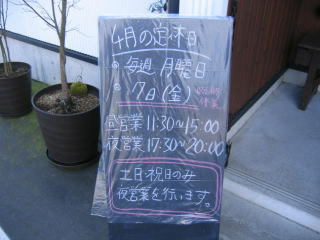 4月の定休日
毎週月曜日
7日(金) 臨時休業
昼営業 11:30~15:00
夜営業 17:30~20:00
土日・祝日のみ
夜営業を行います。